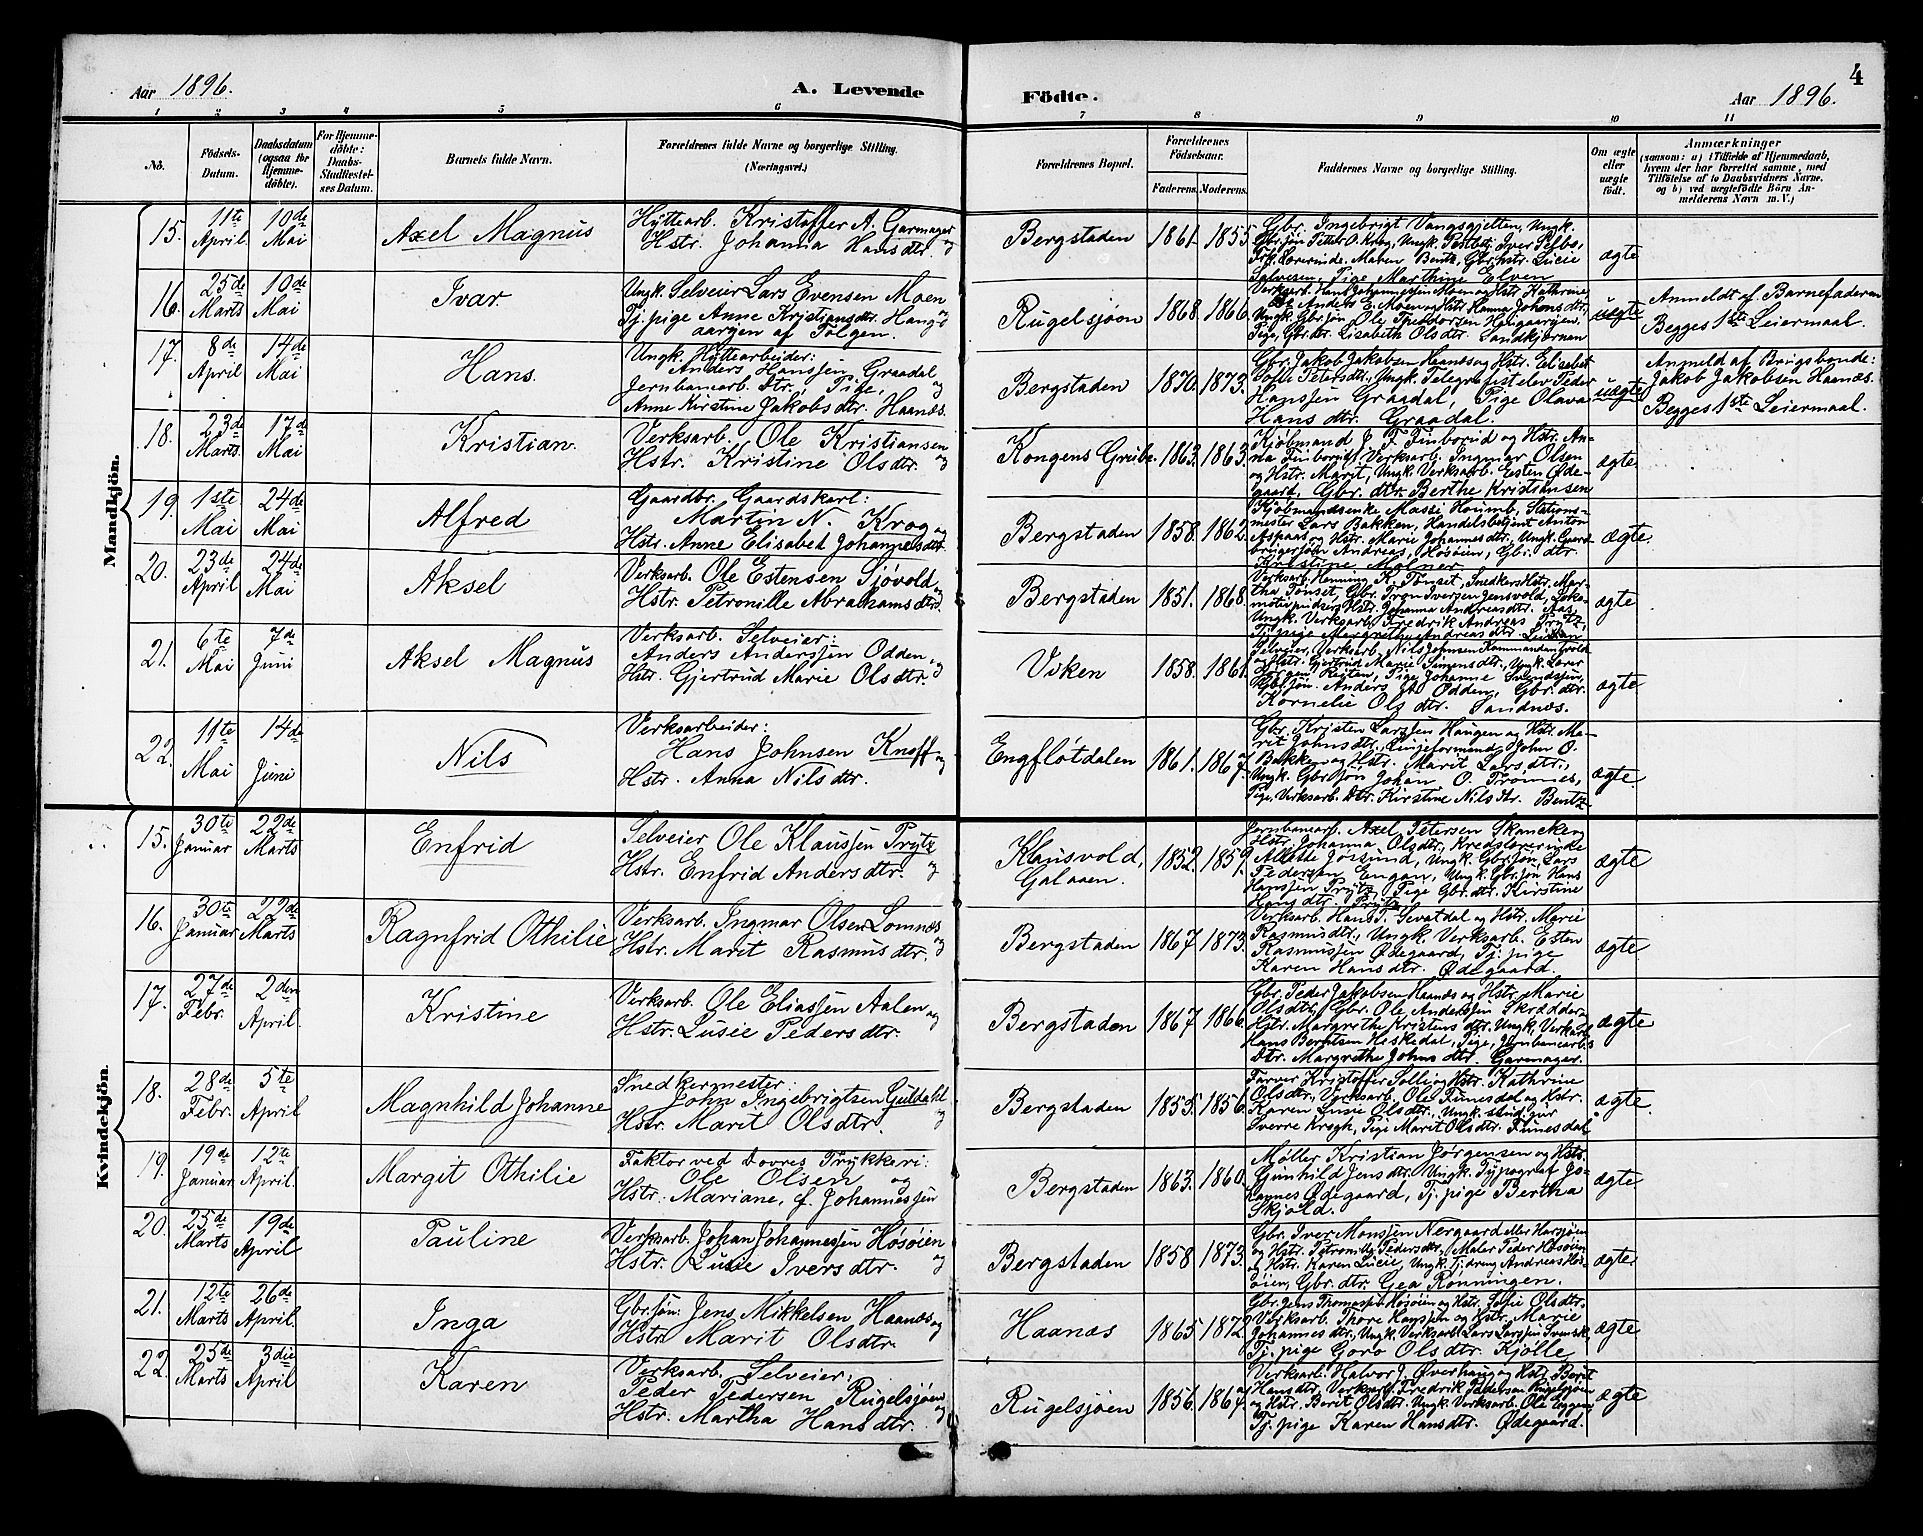 Aar 1896.
A. Levende
Födte.
Aar 1896.
4
1 2 3 4 5 6 7 8 9 10 11
No.
Födsels-
Datum.
Daabsdatum
(ogsaa for
Hjemme-
döbte).
For Hjemme-
döbte:
Daabs-
Stadfæstel-
ses Datum.
Barnets fulde Navn.
Forældrenes fulde Navne og borgerlige Stilling.
(Næringsvei.)
Forældrenes Bopæl.
Forældrenes
Födselsaar.
Faderens. Moderens.
Faddernes Navne og borgerlige Stilling.
Om ægte
eller
uægte
födt.
Anmærkninger
(saasom: a) i Tilfælde af Hjemmedaab,
hvem der har forrettet samme, med
Tilföielse af to Daabsvidners Navne,
og b) ved uægtefödte Börn An-
melderens Navn m. V.)
Mandkjön.
15. 11te April 10de Mai
Axel Magnus
Hyttearb. Kristoffer A. Garmager og
Hstr. Johanna Hansdtr.
Bergstaden 1861. 1855.
Gbr. Ingebrigt Vangsgjelten, Ungk.
Gbr.søn Petter O. Krog, Ungk. Iver Selbo,
Frk. Lærerinde. Maren Bentz, Gbr.hstr. Lucie
Salvesen, Pige Marthine Elven
ægte
16. 25de Marts 10de Mai
Ivar
Ungk. Selveier Lars Evensen Moen
Tj. pige Anne Kristiansdtr. Haug-
aargen af Tolgen.
Rugelsjøen 1868. 1866.
Verksarb. Hans Johannessen Moen og Hstr. Kathrine
Anders E. Moen og Hstr. Hanna Johansdtr,
Ungk. Gbr.søn Ole Haugaargen.
Pige, Gbr.dtr. Lisabeth Olsdtr. Sandkjernan
uægte
Anmeldt af Barnefaderen
Begges 1ste Leiermaal.
17. 8de April 14de Mai
Hans.
Ungk. Hyttearbeider:
Anders Hanssen Graadal og
Jernbanearb. Dtr. Pige,
Anne Kirstine Jakobsdtr. Haanæs.
Bergstaden 1870. 1873.
Gbr. Jakob Jakobsen Haanæs og Hstr. Elisabet
Cofie Petersdtr., Ungk. Telegrafist elev Peder
Hanssen Graadal, Pige Olava
Hansdtr. Graadal.
uægte
Anmeld af Brugsbonde:
Jakob Jakobsen Haanæs.
Begges 1ste Leiermaal.
18. 23de Marts 17de Mai
Kristian.
Verksarb. Ole Kristiansen og
Hstr. Kristine Olsdtr.
Kongens Grube. 1863. 1863.
Kjøbmand J. F. Finborud og Hstr. An-
na Finborud, Verksarb. Ingmar Olsen
og Hstr. Marit, Ungk. Verksarb. Esten Øde-
gaard, Gbr. dtr. Berthe Kristiansen
ægte
19. 1ste Mai 24de Mai
Alfred
Gaardbr. Gaardskarl:
Martin N. Krog og
Hstr. Anne Elisabet Johannesdtr.
Bergstaden 1858. 1862.
Kjøbmandsenke Massi Houmb, Stations-
mester Lars Bakken, Handelsbetjent Anton
Aspaas og Hstr. Marie Johannesdtr., Ungk. Gaard-
brugersøn Andreas Høsøien, Gbr. dtr.
Kristine Molner.
ægte.
20. 23de April 24de Mai
Aksel
Verksarb. Ole Estensen Sjøvold og
Hstr. Petronille Abrahamsdtr.
Bergstaden 1851. 1868.
Verksarb. Henning K. Tønset, Snedkers Hstr. Mar-
tha Tønset, Gbr. Tron Iversen Jensvold, Loko-
motivpudser Hstr. Johanna Andreasdtr. Aas,
Ungk. Verksarb. Fredrik Andreas Prytz,
Tj. pige Margrethe Andreasdtr.
ægte
21. 6te Mai 7de Juni
Aksel Magnus
Verksarb. Selveier:
Anders Anderssen Odden, og
Hstr. Gjertrud Marie Olsdtr.
Viken 1858. 1861.
Selveier, Verksarb. Nils Johnsen Kommandantvold
og Hstr. Gjertrud Marie Simensdtr., Ungk. Lærer
Jørgen Reiten, Pige Johanne Svendssen,
Gbr.søn. Anders A. Odden, Gbr. dtr.
Kornelie Olsdtr. Sandnæs.
ægte
22. 11te Mai 14de Juni
Nils
Verksarbeider:
Hans Johnsen Knoff og
Hstr. Anna Nilsdtr.
Engflotdalen 1861. 1867.
Gbr. Kristen Larssen Haugen og Hstr. Ma-
rit Johnsdtr., Linjeformand, John O.
Bakken og Hstr. Marit Larsdtr.,
Ungk. Gbr.søn Johan O. Trønnes,
Pige, Verksarb. Dtr. Kirstine Nilsdtr. Bentz
ægte
Kvindekjön.
15. 30te Januar 22de Marts
Enfrid
Selveier Ole Klaussen Prytz og
Hstr. Enfrid Andersdtr.
Klausvold,
Galaaen. 1852. 1859.
Jernbanearb. Axel Petersen Skancke og
Hstr. Johanna Olsdtr., Kredslærerinde
Allette Jørsund, Ungk. Gbr.søn Lars
Pedersen Engan, Ungk. Gbr.søn Hans
Hanssen Prytz, Pige Gbr.dtr. Kirstine
Hansdtr. Prytz
ægte
16. 30te Januar 22de Marts
Ragnfrid Othilie
Verksarb. Ingmar Olsen Lomnæs og
Hstr. Marit Rasmusdtr.
Bergstaden 1867. 1873.
Verksarb. Hans T. Sevatdal og Hstr. Marie
Rasmusdtr., Ungk. Verksarb. Esten
Rasmussen Ødegaard, Tj. pige
Karen Hansdtr. Ødegaard.
ægte
17. 27de Febr. 2den April.
Kristine
Verksarb. Ole Eliassen Aalen og
Hstr. Lusie Pedersdtr.
Bergstaden 1867. 1866.
Gbr. Peder Jakobsen Haanæs og Hstr. Marie
Olsdtr., Gbr. Ole Anderssen Skrødder,
Hstr. Margrethe Kristensdtr. Ungk. Verksarb.
Hans Berntsen Heskedal, Pige, Jernbanearb's
Dtr. Margrethe Johnsdtr. Garmager.
ægte
18. 28de Febr. 5te April
Magnhild Johanne
Snedkermester:
John Ingebrigtsen Guldahl og
Hstr. Marit Olsdtr.
Bergstaden 1853. 1856.
Farver Kristoffer Solli og Hstr. Kathrine
Olsdtr., Verksarb. Ole Funesdal og Hstr.
Karen Lusie Olsdtr., Ungk. stud. jur
Sverre Krogh, Pige Marit Olsdtr. Funesdal
ægte.
19. 19de Januar 12te April.
Margit Othilie
Faktor ved Dovres Trykkeri:
Ole Olsen og
Hstr. Mariane, f. Johannessen
Bergstaden 1863. 1860.
Møller Kristian Jørgensen og Hstr.
Gunhild Jensdtr., Ungk. Typograf Jo-
hannes Ødegaard, Tj. pige Bertha
Skjold.
ægte
20. 25de Marts 19de April
Pauline
Verksarb. Johan Johannessen Høsøien og
Hstr. Lusie Iversdtr.
Bergstaden 1858 1873.
Gbr. Iver Monssen Nergaard eller Harsjøen
og Hstr. Petronille Pedersdtr., Maler Peder Høsøien
og Hstr. Karen Lucie, Ungk. Tj.dreng Andreas Høs-
øien, Gbr. dtr. Gea Rønningen.
ægte
21. 12te Marts 26de April.
Inga
Gbr.søn: Jens Mikkelsen Haanæs og
Hstr. Marit Olsdtr.
Haanæs 1865 1872
Gbr. Jens Thomassen Høsøien og Hstr. Sofie Olsdtr.
Verksarb. Thore Hanssen og Hstr. Marie
Johannesdtr., Ungk. Verksarb. Lars Larssen Svensk,
Tj. pige Goro Olsdtr. Kjølle
ægte
22. 25de Marts 3die April
Karen
Verksarb. Selveier,
Peder Pedersen Rugelsjøen og
Hstr. Martha Hansdtr.
Rugelsjøen 1856. 1867.
Verksarb. Halvor J. Øverhaug og Hstr. Berit
Hansdtr., Verksarb. Fredrik Pedersen Rugelsjøen
og Hstr. Berit Olsdtr. Ungk. Verksarb. Ole
Tj. pige Karen Hansdtr. Ødegaard.
ægte